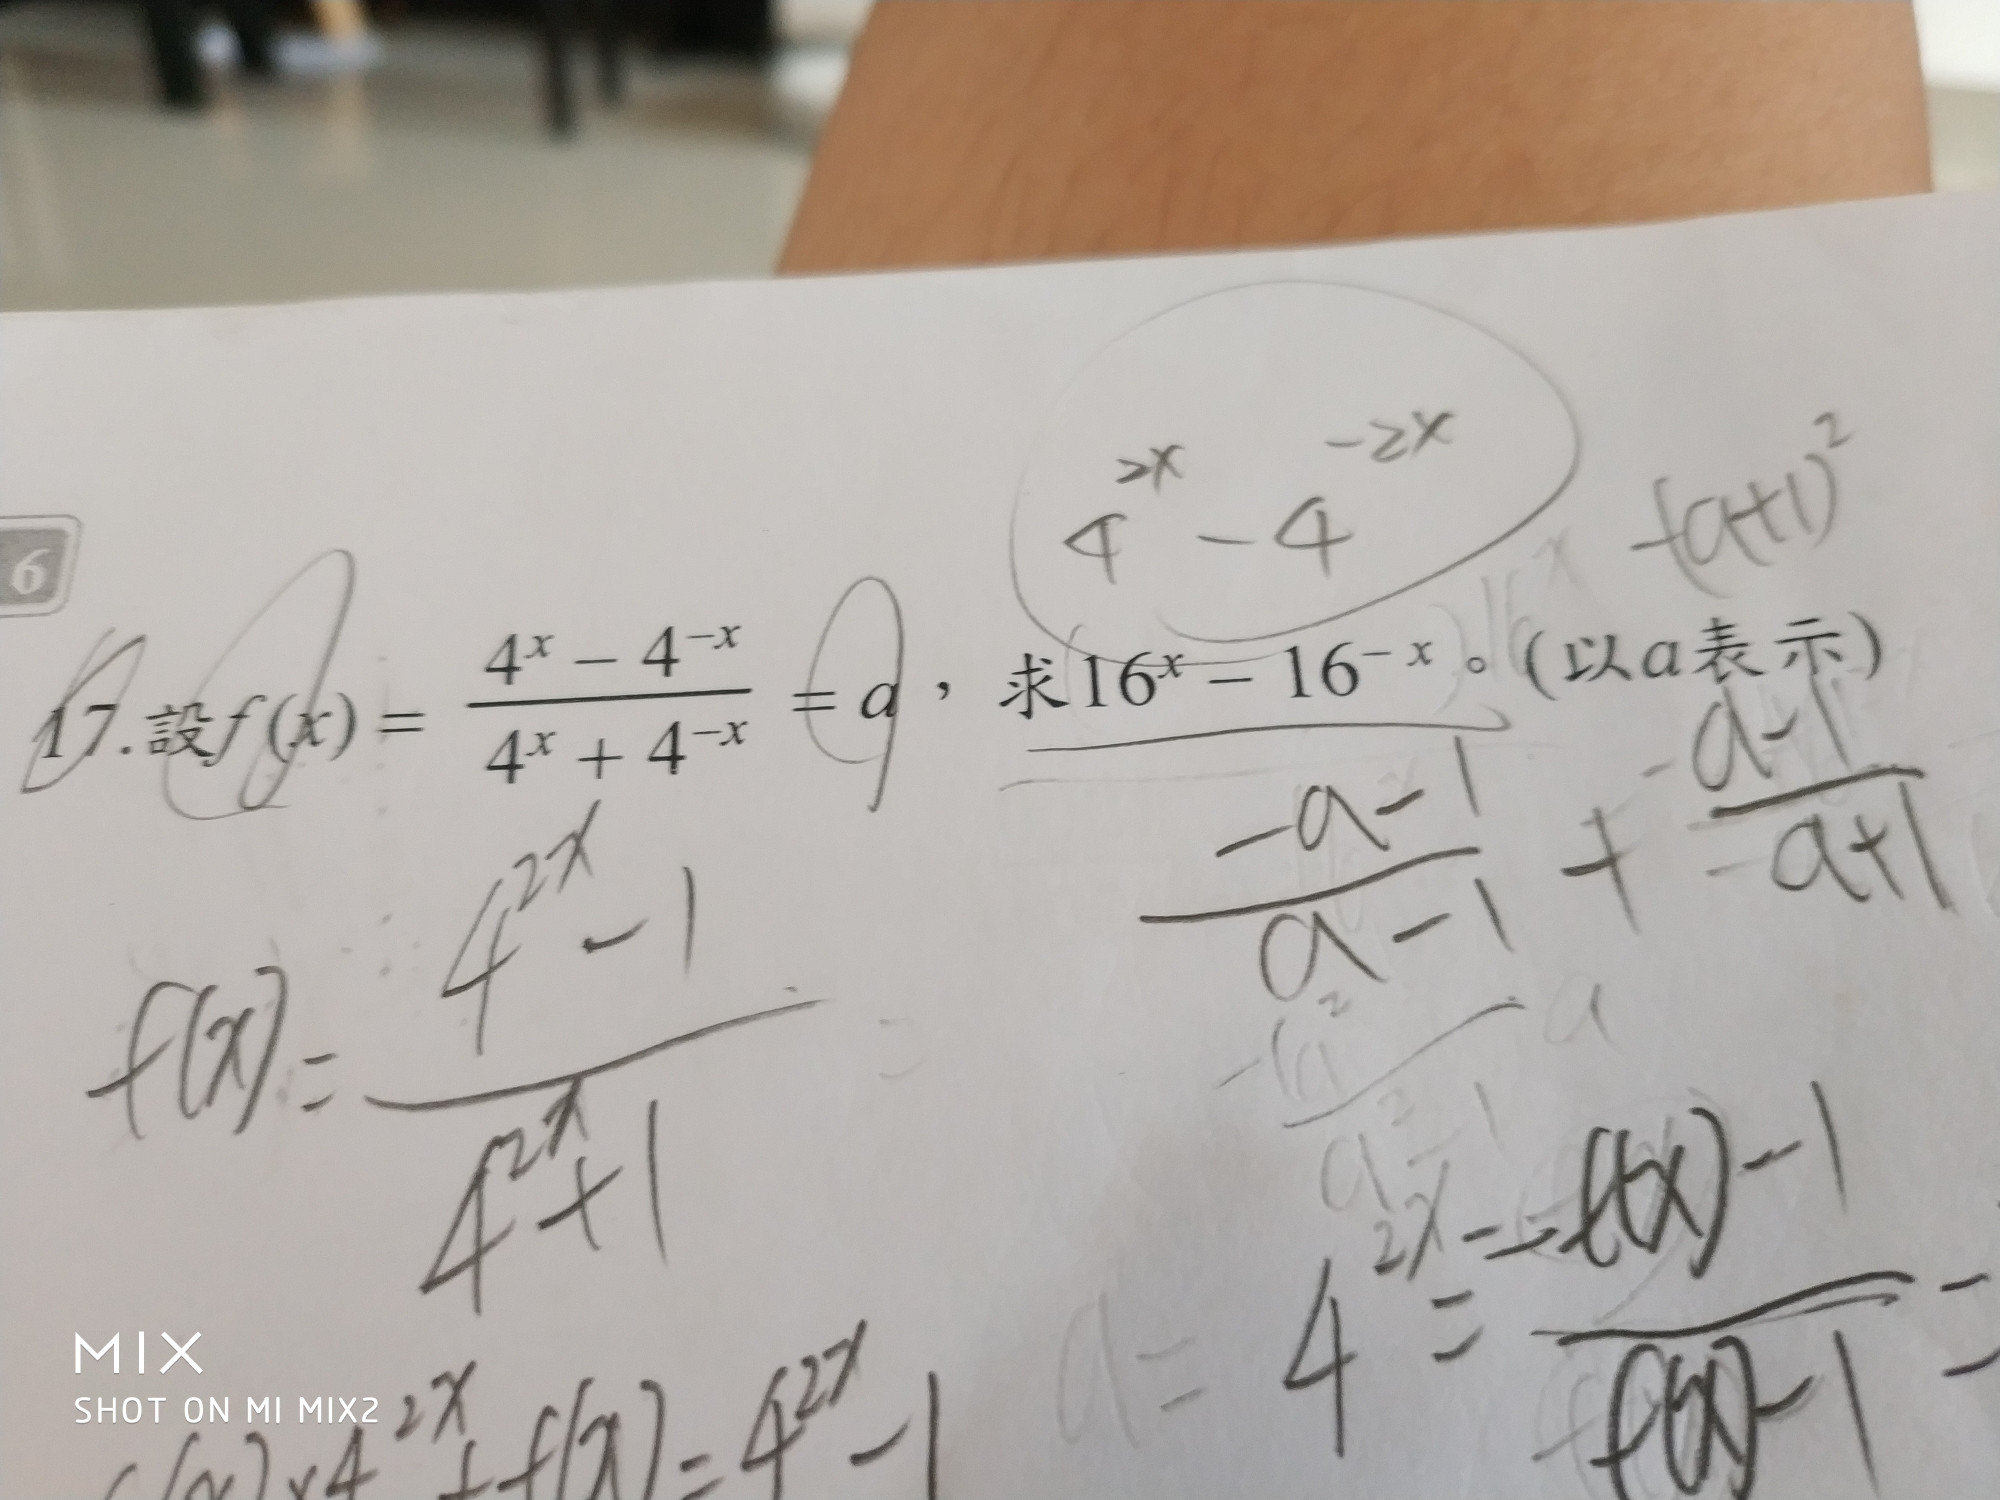 4^{2x} - 4^{-2x}
-(a+1)^2
6
17.設f(x) = \frac{4^x - 4^{-x}}{4^x + 4^{-x}} = a，求16^x - 16^{-x}。(以a表示)
\frac{-a-1}{a-1} + \frac{-a-1}{-a+1}
f(x) = \frac{4^{2x} - 1}{4^{2x} + 1}
4^{2x} = \frac{-f(x)-1}{f(x)-1} =
f(x) × 4^{2x} + f(x) = 4^{2x} - 1
MIX
SHOT ON MI MIX2